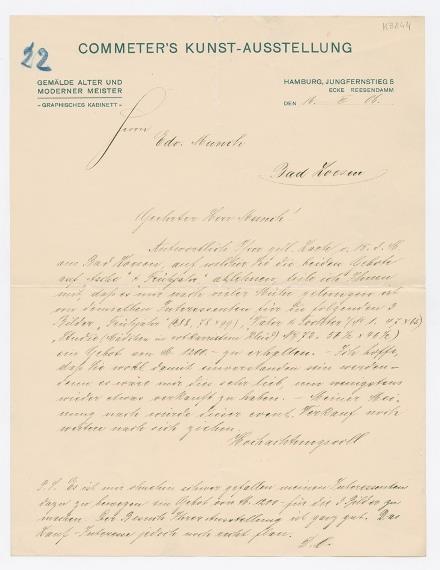 22
M3244
COMMETER'S KUNST-AUSSTELLUNG
GEMÄLDE ALTER UND
MODERNER MEISTER
- GRAPHISCHES KABINETT -
HAMBURG, JUNGFERNSTIEG 5
ECKE REESENDAMM
DEN 16. 06.
Herrn
Edv. Munch
Bad Koesen
Geehrter Herr Munch!
Antwortlich Ihrer gefl. Karte v.
aus Bad Koesen, auf welcher Sie die beiden Gebote
auf " & "Frühjahr" ablehnen, teile ich Ihnen
mit, dass es mir nach vieler Mühe gelungen ist
von demselben Interessenten für die folgenden 3
Bilder, "Frühjahr" "Vater & Tochter"
"Studie (Mädchen in rotkarriertem Kleid)
ein Gebot von M 1200.- zu erhalten. - Ich hoffe,
dass Sie wohl damit einverstanden sein werden -
denn es wäre mir sehr lieb, um wenigstens
wieder etwas verkauft zu haben. - Meiner Mei-
nung nach würde dieser event. Verkauf noch
weitere nach sich ziehen.
Hochachtungsvoll
P.S. Es ist mir schwer gefallen meinen Interessenten
dazu zu bewegen ein Gebot von M. 1200.- für die 3 Bilder zu
machen. Der Besuch Ihrer Ausstellung ist ganz gut. Das
Kauf-Interesse jedoch noch recht flau.
D. O.